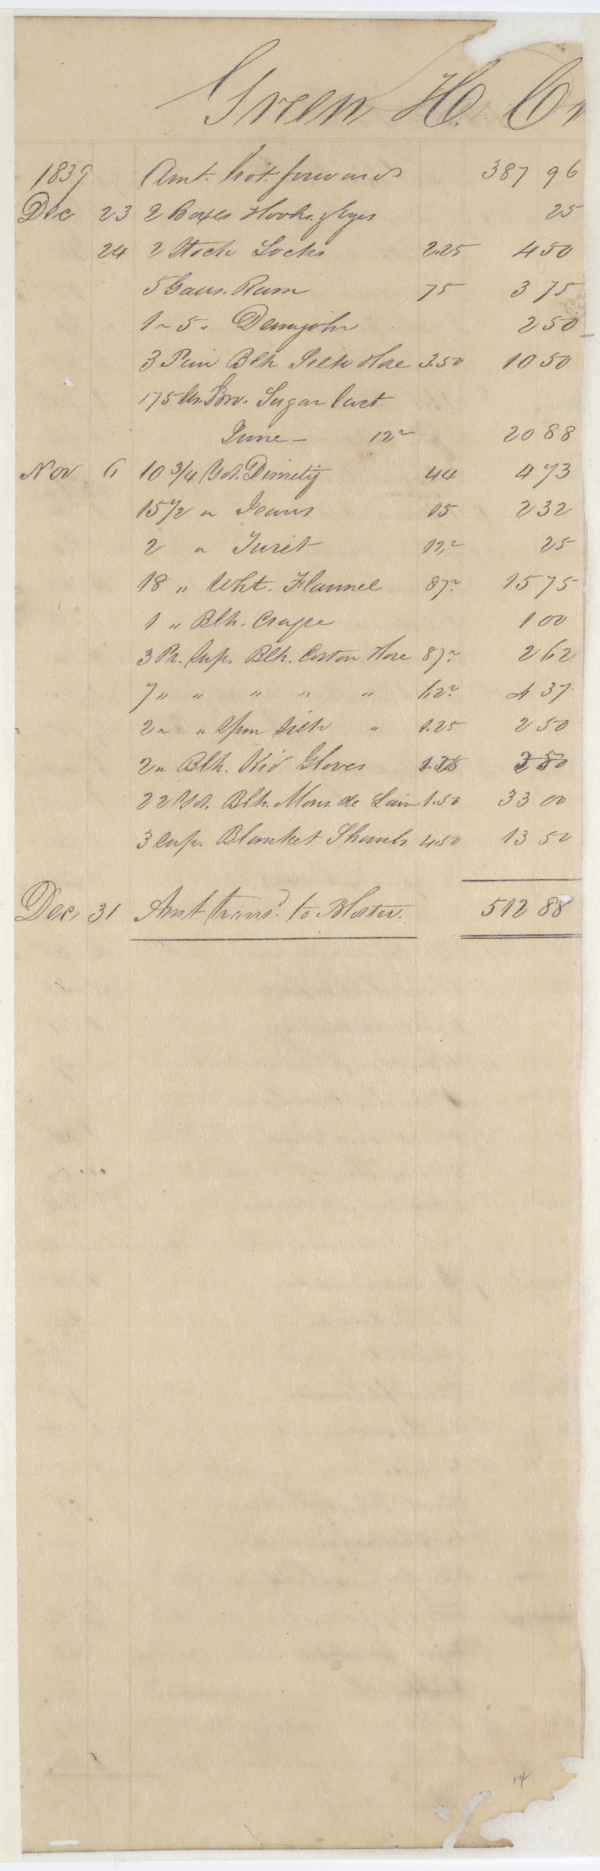 Green H. Cr
1839 Amt. brot. forwards 387 96
Dec 23 2 Boxes Hooks & Eyes 25
24 2 Stock Locks 2.25 4 50
5 Galls. Rum 75 3 75
1 " 5 " Demijohn 2 50
3 Pair Blk Silk Hose 3.50 10 50
175 lbs. Bro. Sugar
June — 12 20 88
Nov 6 10 3/4 Yds. Dimity 44 4 73
15 1/2 " Jeans 15 2 32
2 " 12 25
18 " Wht. Flannel 87 15 75
1 " Blk. Crape 1 00
3 Pr. Sup. Blk. Cotton Hose 87 2 62
7 " " " " " 62 4 37
2 " " Spun Silk " 1.25 2 50
2 " Blk. Kid Gloves
22 Yds. Blk. Mous. de Lain 1.50 33 00
3 Sup. Blanket Shawls 4.50 13 50
Dec, 31 Amt trans.d to Blotter. 512 88